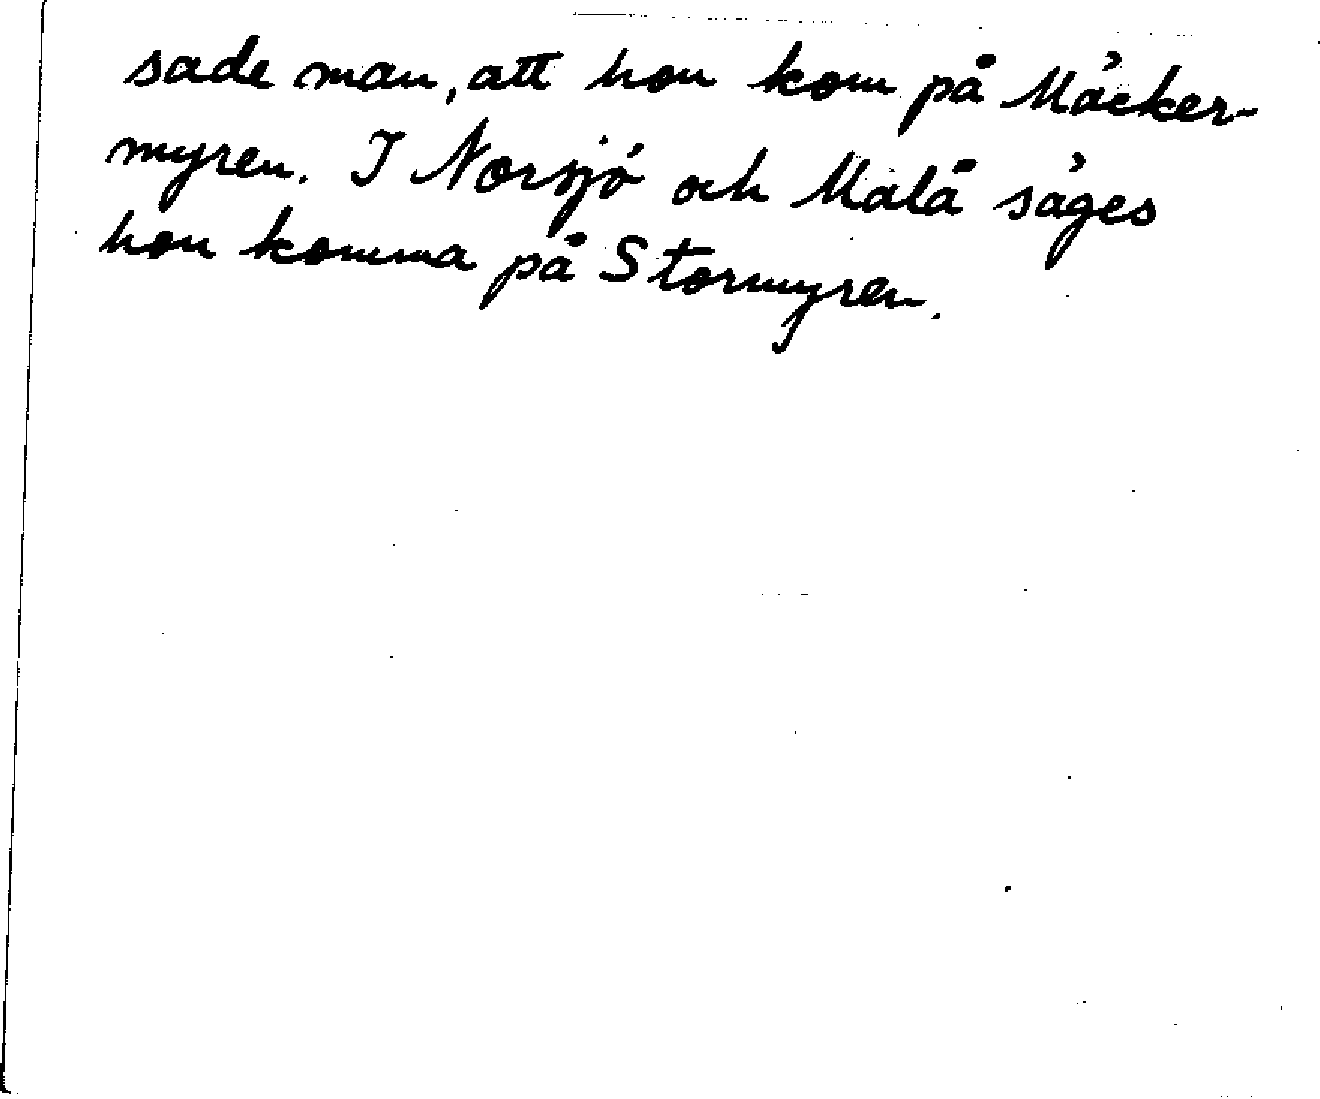 sade man, att hon kom på Mäcker-
myren. I Norsjö och Malå säges
hon komma på Stormyren.